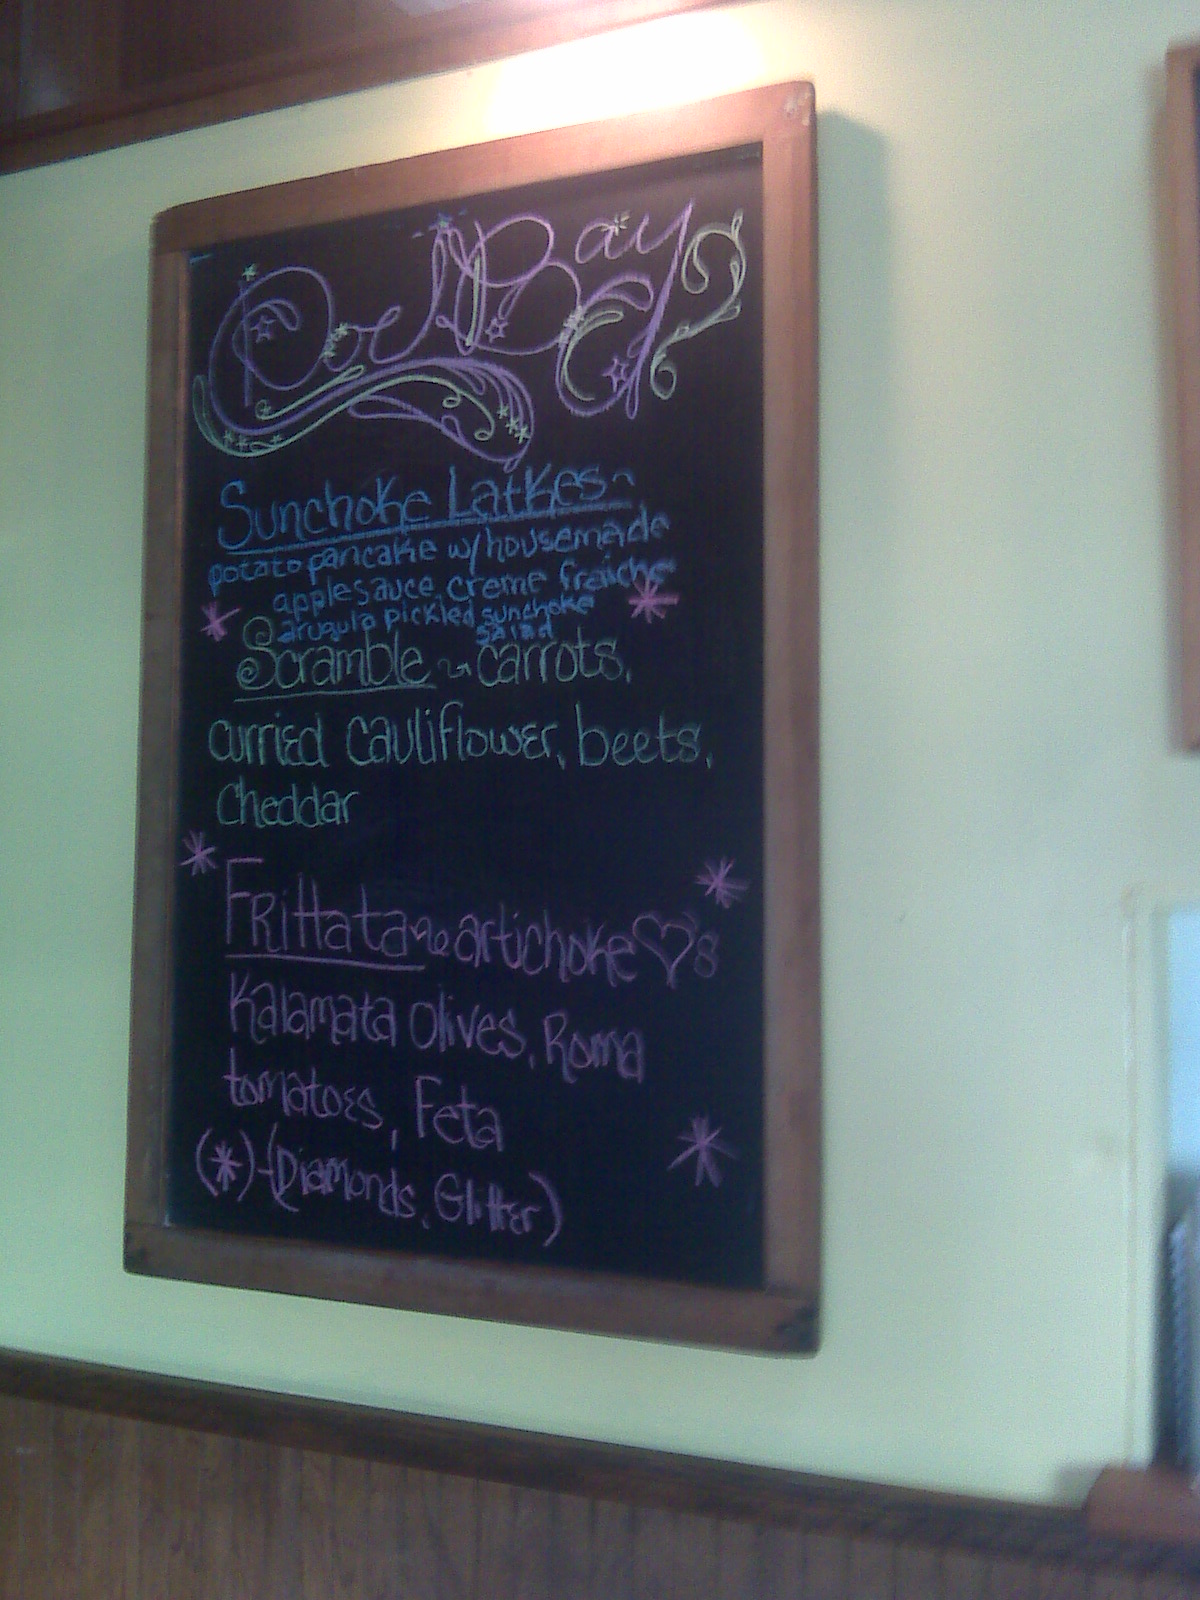 Sunchoke Latkes~
potato pancake w/ housemade
applesauce, creme fraiche
arugula pickled sunchoke
salad
Scramble ~ carrots,
curried cauliflower, beets,
cheddar
Frittata ~ artichoke ♡'s
Kalamata olives, Roma
tomatoes, Feta
(*)-(Diamonds, Glitter)